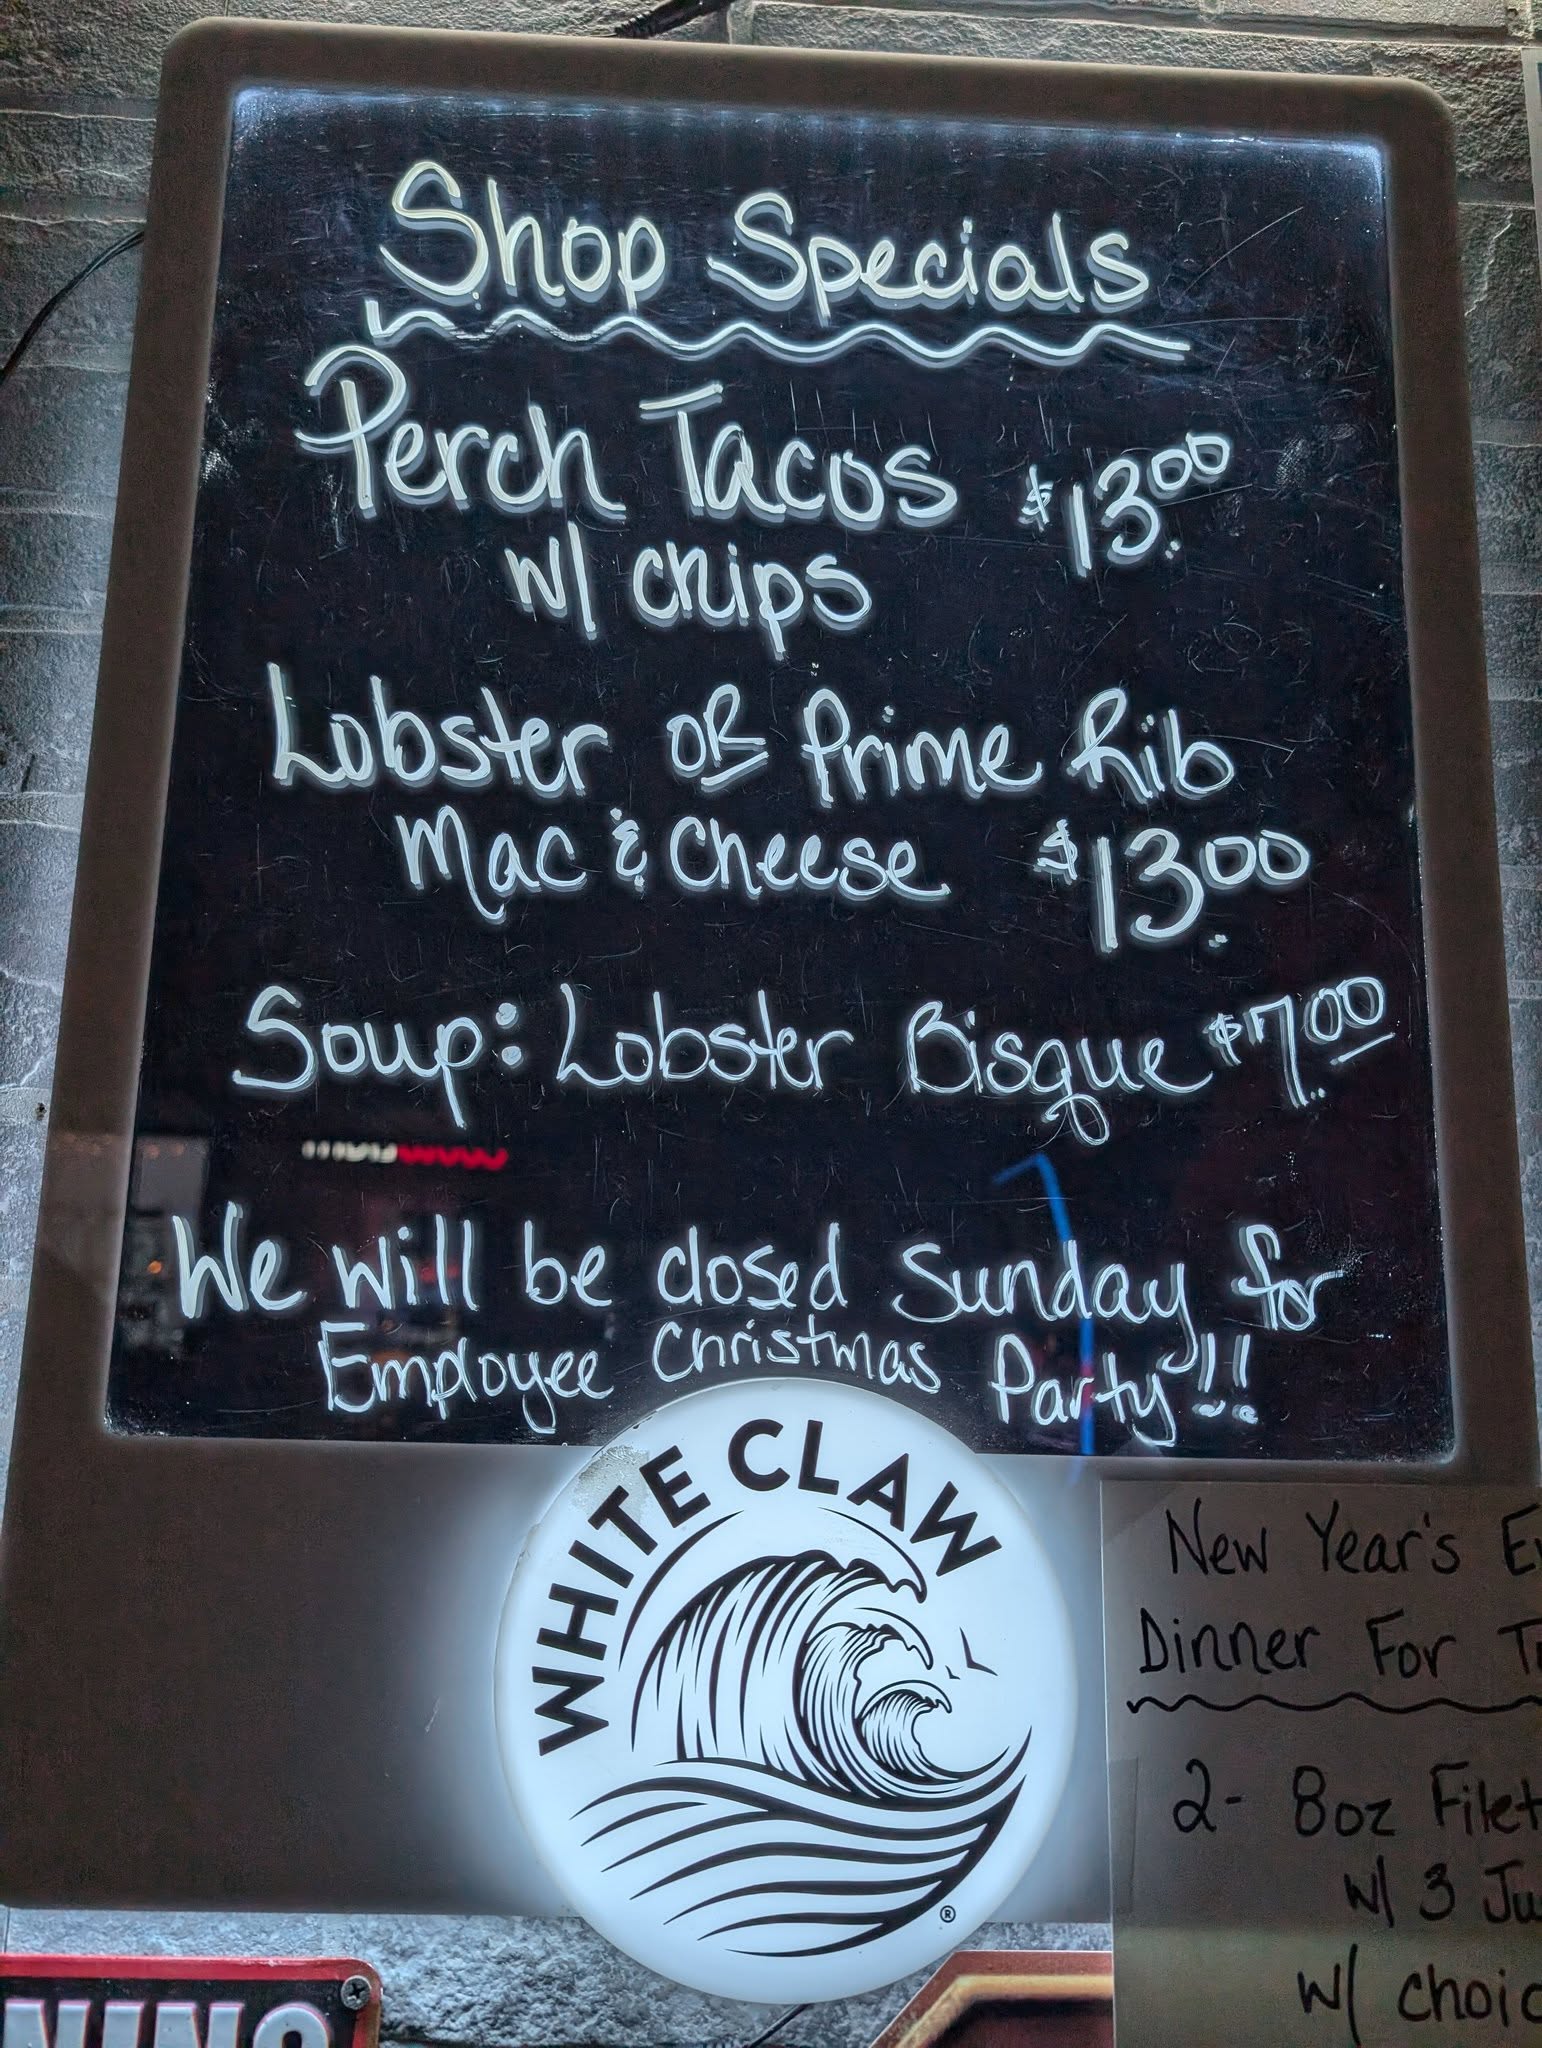 Shop Specials
Perch Tacos $13.00
w/ chips
Lobster OR Prime Rib
Mac & Cheese $13.00
Soup: Lobster Bisque $7.00
We will be closed Sunday for
Employee Christmas Party!!
WHITE CLAW
®
New Year's
Dinner For
2- 8oz Filet
w/ 3
w/